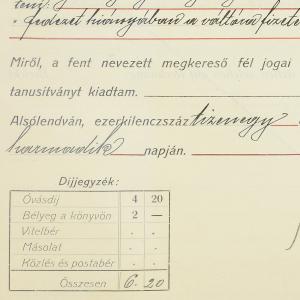 fedezet hiányában a váltóra fizeté
Miről, a fent nevezett megkereső fél jogai
tanusitványt kiadtam.
Alsólendván, ezerkilenczszáz tizenegy
harmadik napján.
Dijjegyzék:
Óvásdij 4 20
Bélyeg a könyvön 2 —
Vitelbér . .
Másolat . .
Közlés és postabér . .
Összesen 6 20